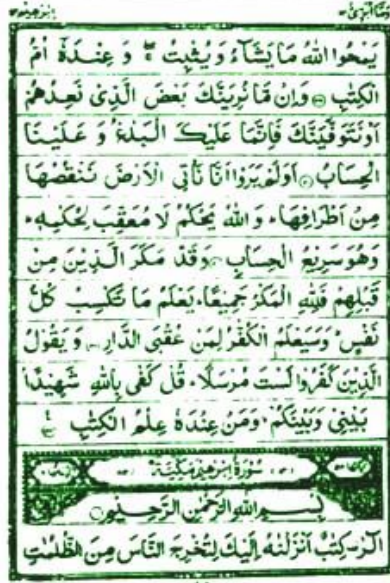 وما ابرئ ١٣
ابرٰهيم ١٤
يَمْحُوا اللهُ مَا يَشَآءُ وَيُثْبِتُ ۖ وَ عِنْدَهٗٓ اُمُّ
الْكِتٰبِ ۝ وَاِنْ مَّا نُرِيَنَّكَ بَعْضَ الَّذِىْ نَعِدُهُمْ
اَوْ نَتَوَفَّيَنَّكَ فَاِنَّمَا عَلَيْكَ الْبَلٰغُ وَ عَلَيْنَا
الْحِسَابُ ۝ اَوَلَمْ يَرَوْا اَنَّا نَاْتِى الْاَرْضَ نَنْقُصُهَا
مِنْ اَطْرَافِهَا ؕ وَ اللهُ يَحْكُمُ لَا مُعَقِّبَ لِحُكْمِهٖ ؕ
وَهُوَ سَرِيْعُ الْحِسَابِ ۝ وَقَدْ مَكَرَ الَّذِيْنَ مِنْ
قَبْلِهِمْ فَلِلّٰهِ الْمَكْرُ جَمِيْعًا ؕ يَعْلَمُ مَا تَكْسِبُ كُلُّ
نَفْسٍ ؕ وَسَيَعْلَمُ الْكُفّٰرُ لِمَنْ عُقْبَى الدَّارِ ۝ وَ يَقُوْلُ
الَّذِيْنَ كَفَرُوْا لَسْتَ مُرْسَلًا ؕ قُلْ كَفٰى بِاللهِ شَهِيْدًۢا
بَيْنِىْ وَبَيْنَكُمْ ۙ وَمَنْ عِنْدَهٗ عِلْمُ الْكِتٰبِ ۝
سُوْرَةُ اِبْرٰهِيْمَ مَكِّيَّةٌ
بِسْمِ اللهِ الرَّحْمٰنِ الرَّحِيْمِ ۝
الٓرٰ ۚ كِتٰبٌ اَنْزَلْنٰهُ اِلَيْكَ لِتُخْرِجَ النَّاسَ مِنَ الظُّلُمٰتِ